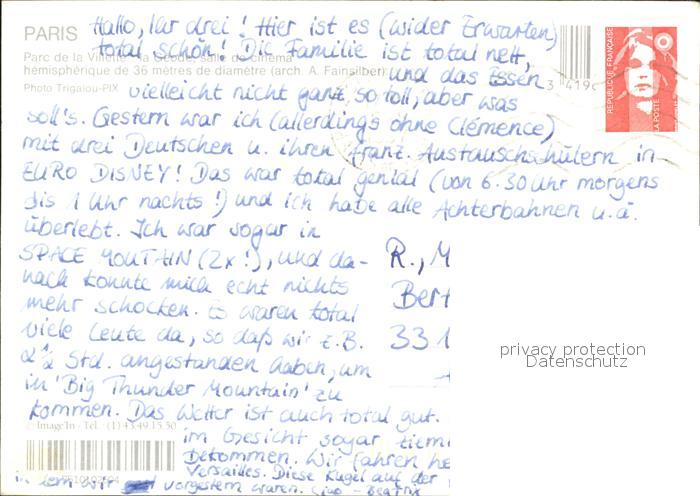 Hallo, Ihr drei! Hier ist es (wider Erwarten)
PARIS
total schön! Die Familie ist total nett,
Parc de la Villette - la Géode, salle de cinéma
hémisphérique de 36 mètres de diamètre (arch. A. Fainsilber)
und das Essen
Photo Trigalou-PIX
vielleicht nicht ganz so toll, aber was
soll's. Gestern war ich (allerdings ohne Clémence)
mit drei Deutschen u. ihren franz. Austauschschülern in
EURO DISNEY! Das war total genial (von 6.30 Uhr morgens
bis 1 Uhr nachts!) und ich habe alle Achterbahnen u.ä.
überlebt. Ich war sogar in
SPACE MOUTAIN (2x!), und da-
nach konnte mich echt nichts
mehr schocken. Es waren total
viele Leute da, so daß wir z.B.
2 1/2 Std. angestanden haben, um
in 'Big Thunder Mountain' zu
kommen. Das Wetter ist auch total gut.
im Gesicht sogar
bekommen. Wir fahren
Versailles. Diese Kugel auf der
in dem wir vorgestern waren. Ciao - Beatrix
© Image'In - Tél. (1) 43.49.15.50
R., M
Ber
33 1
REPUBLIQUE FRANÇAISE
LA POSTE
3 419
privacy protection
Datenschutz